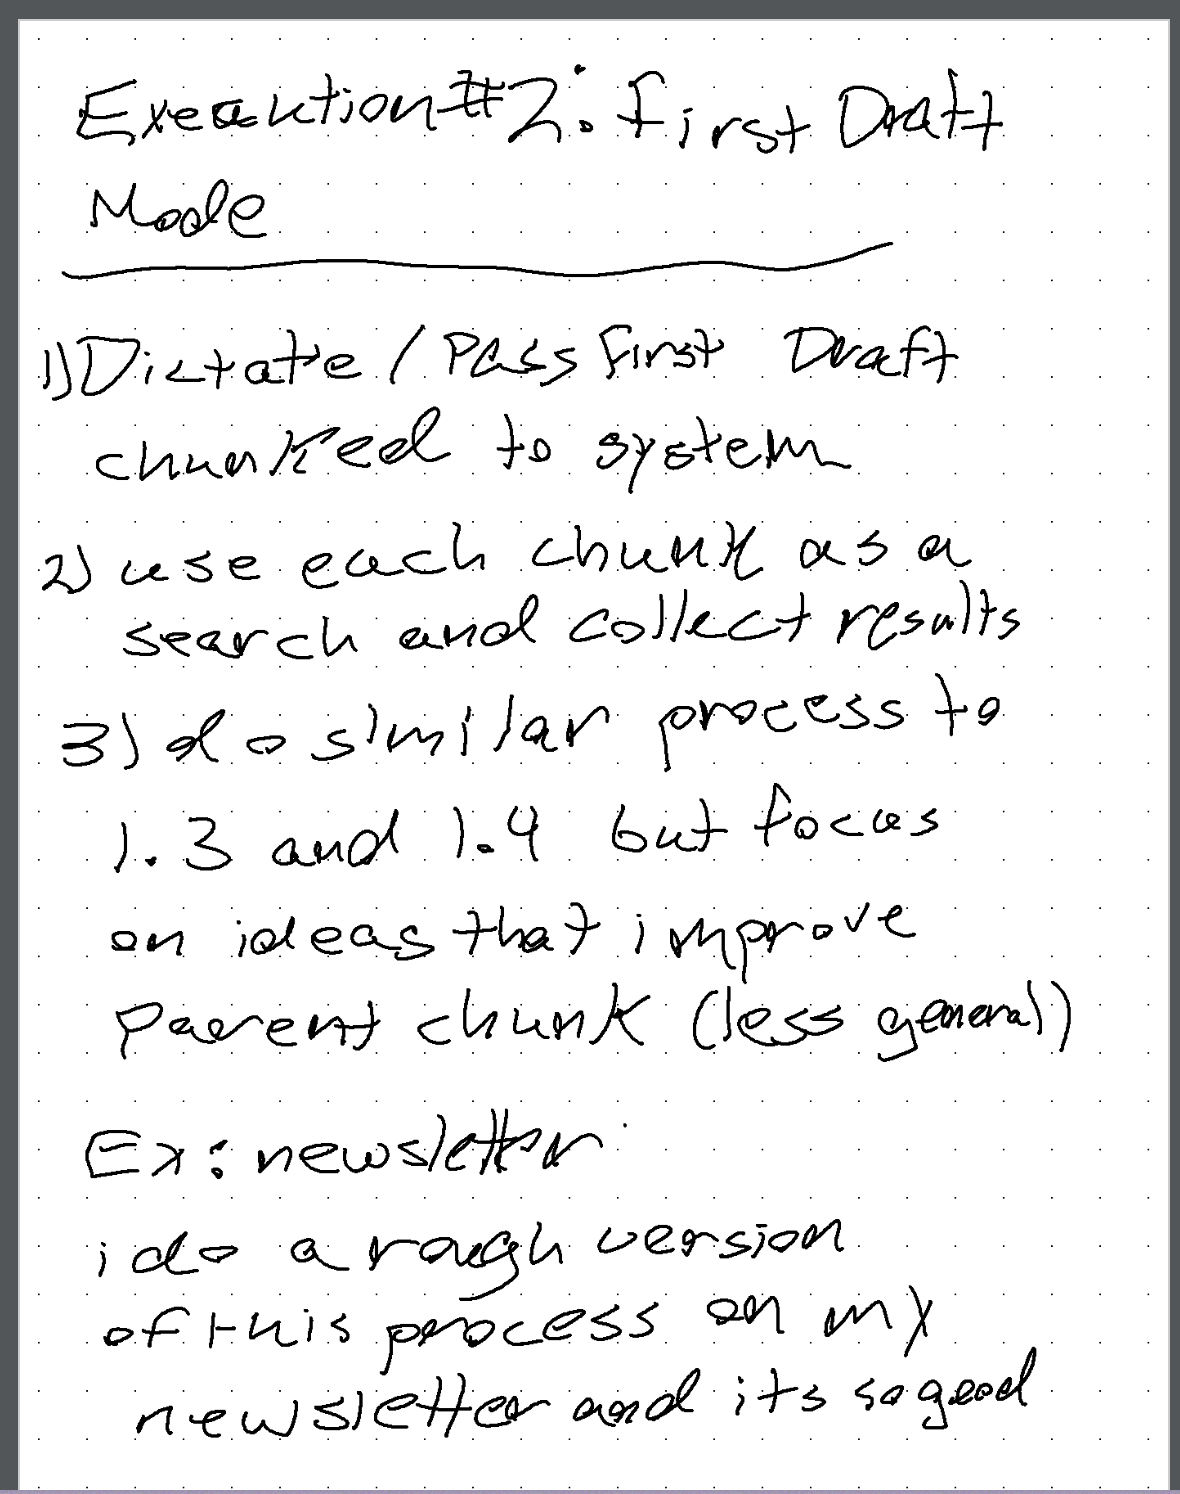 Execution #2: First Draft
Mode
1) Dictate / Pass First Draft
chunked to system
2) use each chunk as a
search and collect results
3) do similar process to
1.3 and 1.4 but focus
on ideas that improve
Parent chunk (less general)
Ex: newsletter
i do a rough version
of this process on my
newsletter and its so good